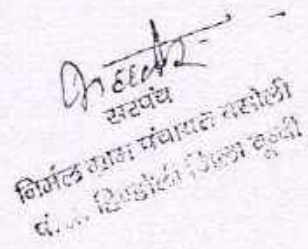 सरपंच
निर्मल ग्राम पंचायत बसोली
पं.स. हिण्डोली जिला बून्दी